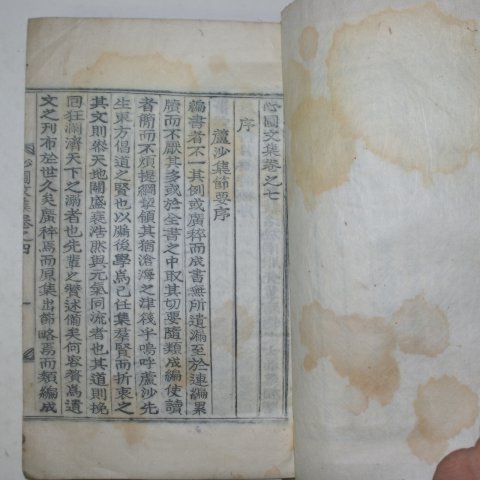 心園文集卷之七
序
蘆沙集節要序
編書者不一其例或廣稡而成書無所遺漏至於連編累
牘而不厭其多或於全書之中取其切要隨類成編使讀
者簡而不煩提綱挈領其猶滄海之津筏乎嗚呼蘆沙先
生東方倡道之賢也以牖後學爲己任集羣賢而折衷之
其文則叅天地關盛衰浩然與元氣同流者也其道則挽
回狂瀾濟天下之溺者也先輩之贊述備矣何容贅焉遺
文之刊布於世久矣廣稡焉而原集出節略焉而類編成
文集卷之四